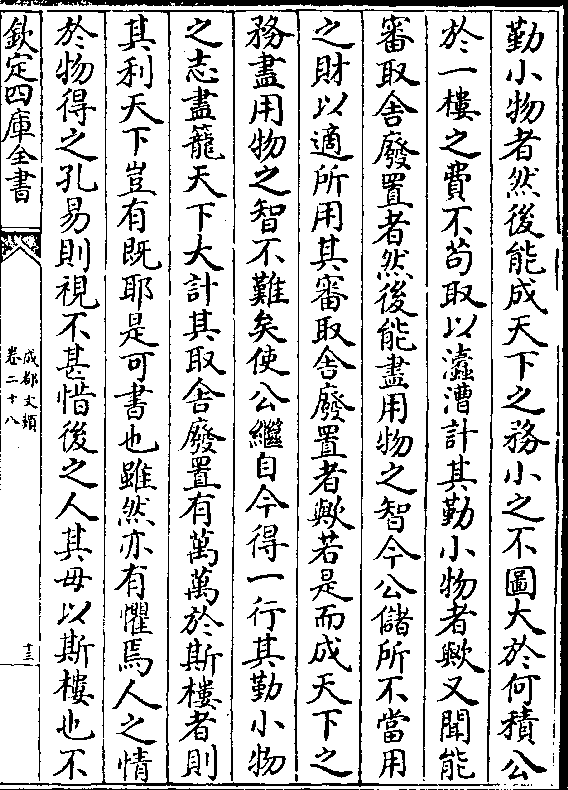 勤小物者然後能成天下之務小之不圖大於何積公
於一樓之費不苟取以濡漕計其勤小物者歟又聞能
審取舎廢置者然後能盡用物之智今公儲所不當用
之財以適所用其審取舎廢置者歟若是而成天下之
務盡用物之智不難矣使公繼自今得一行其勤小物
之志盡籠天下大計其取舎廢置有萬萬於斯樓者則
其利天下豈有既耶是可書也雖然亦有懼焉人之情
於物得之孔易則視不甚惜後之人其毋以斯樓也不
欽定四庫全書
成都文類
卷二十八
十三